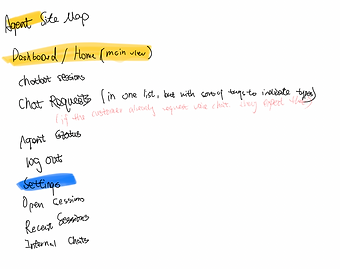 Agent Site Map
Dashboard / Home (main view)
chatbot sessions
Chat Requests (in one list, but with icons or tags to indicate types)
(if the customer already request live chat
Agent Status
Log out
Settings
Open Sessions
Recent Sessions
Internal Chats